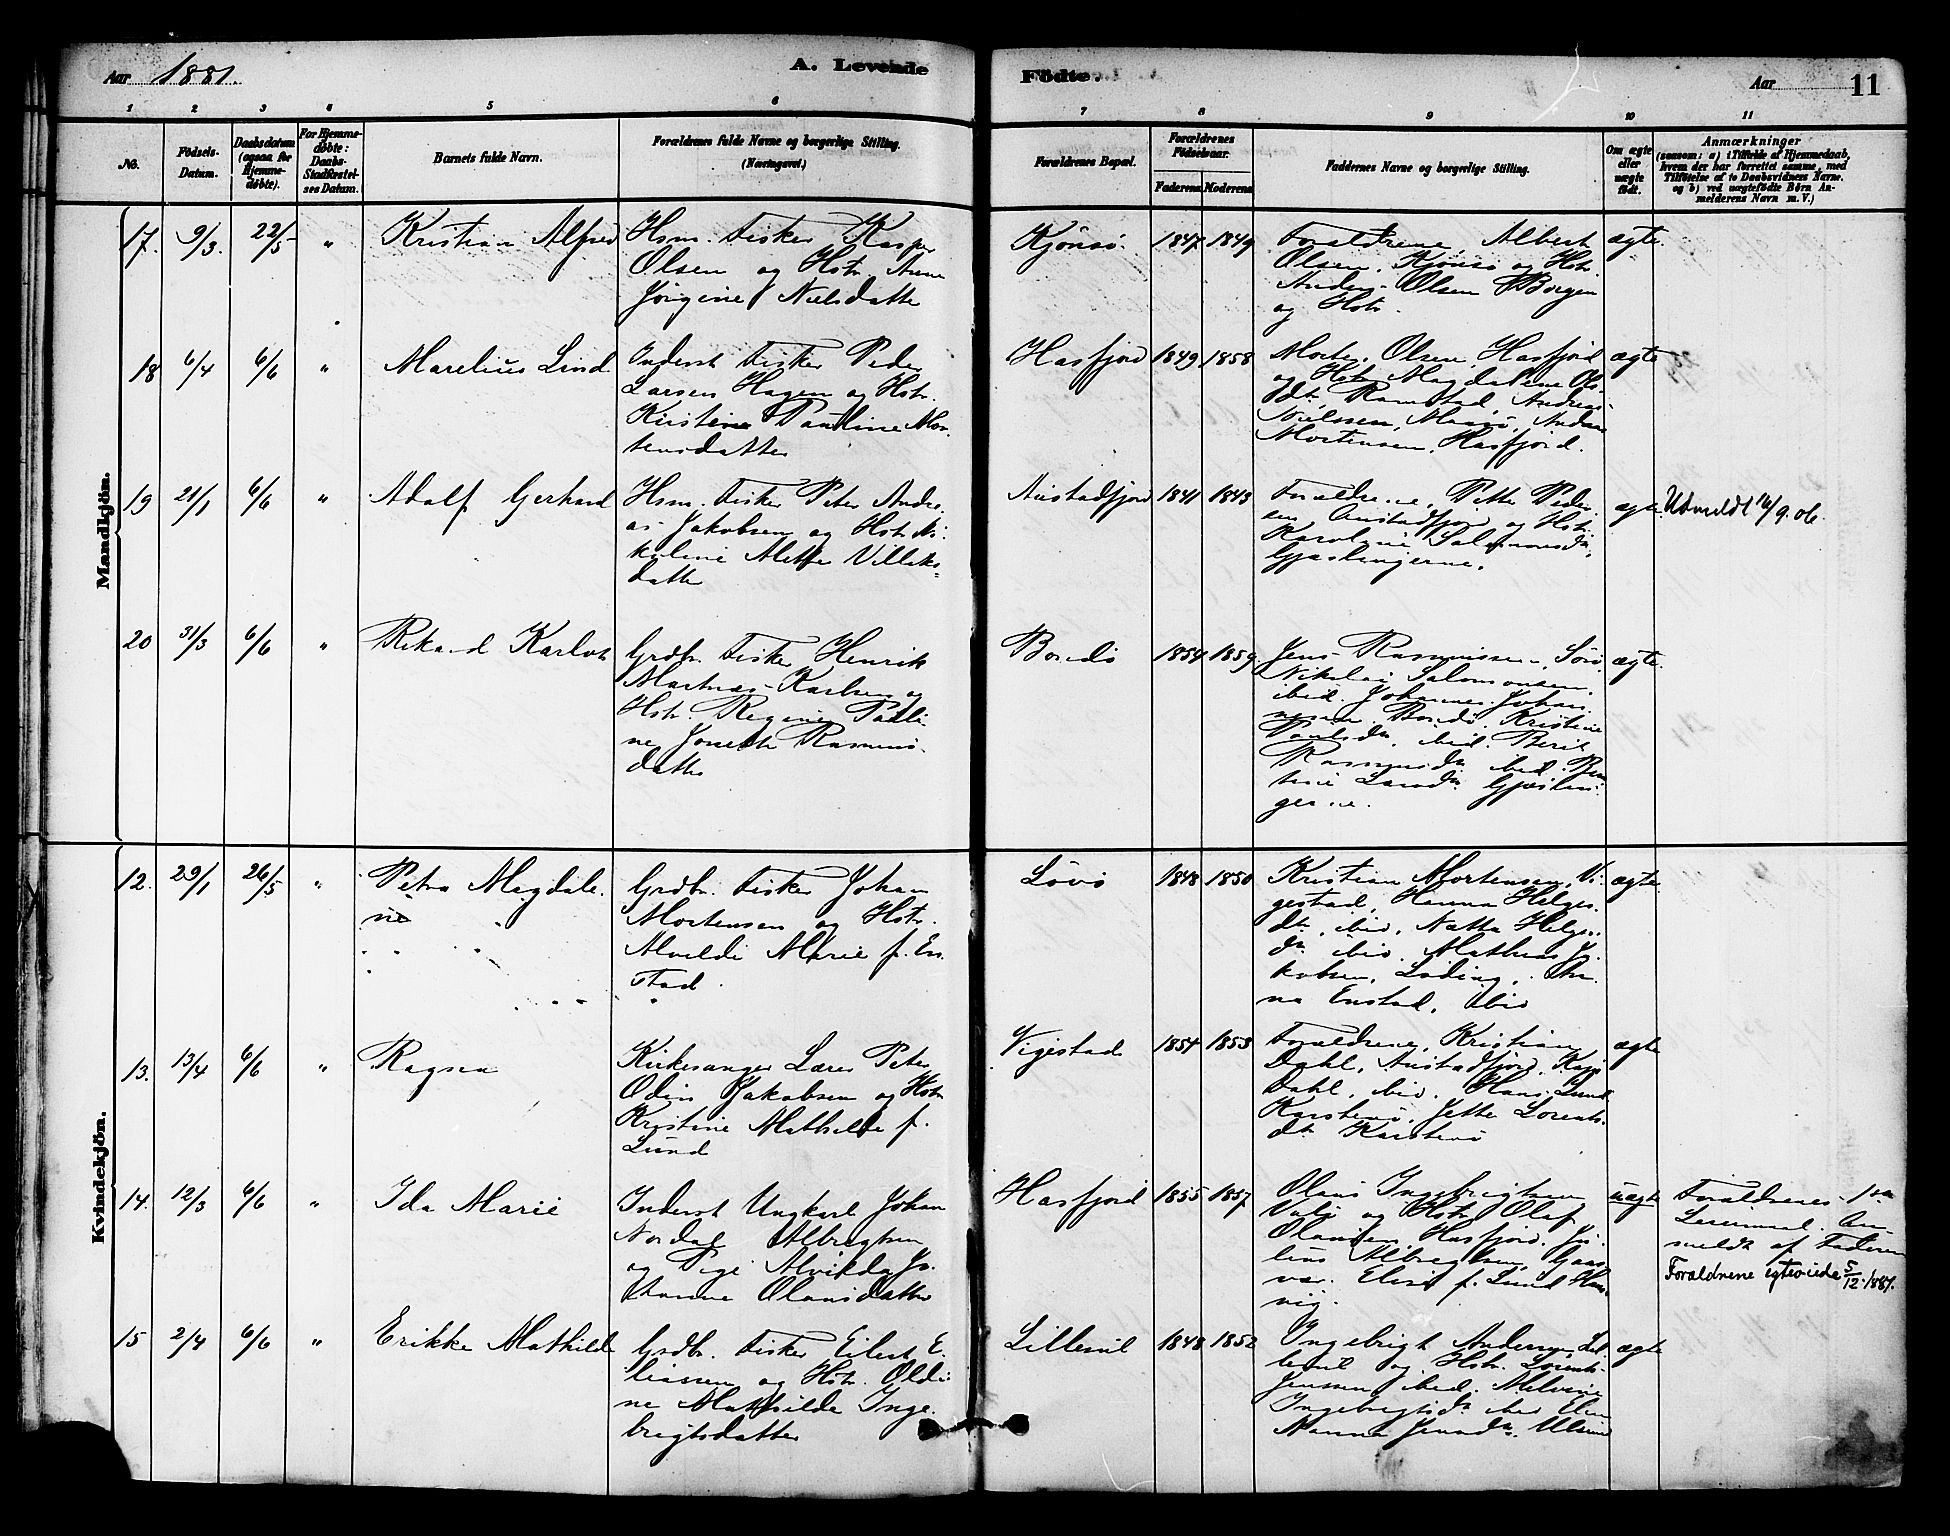 Aar 1881.
A. Levende
Födte.
Aar
11
1 2 3 4 5 6 7 8 9 10 11
No.
Födsels-
Datum.
Daabsdatum
(ogsaa for
Hjemme-
döbte).
For Hjemme-
döbte:
Daabs-
Stadfæstel-
ses Datum.
Barnets fulde Navn.
Forældrenes fulde Navne og borgerlige Stilling.
(Næringsvei.)
Forældrenes Bopæl.
Forældrenes
Födselsaar.
Faderens Moderens
Faddernes Navne og borgerlige Stilling.
Om ægte
eller
uægte
født.
Anmærkninger
(saasom: a) i Tilfælde af Hjemmedaab,
hvem der har forrettet samme, med
Tilföielse af to Daabsvidners Navne.
og b) ved uægtefödte Börn An-
melderens Navn m. V.)
Mandkjön.
17. 9/3. 22/5 " Kristian Alfred
Hsm. Fisker Kasper
Olsen og Hstr. Anne
Jörgine Nielsdatter
Kjönsö. 1847 1849
Forældrene, Albert
Olsen, Kjönsö og Hstr.
Anders Olsen Borgen
og Hstr.
ægte
18 6/4 6/6 " Marelius Lind
Inderst Fisker Peder
Larsen Hagen og Hstr.
Kirstine Pauline Mor-
tensdatter
Hasfjord 1849 1858
Morten Olsen, Hasfjord
og Hstr. Magdalene Ols-
dt. Ramstad, Andreas
Nielssen, Andreas
Mortensen, Hasfjord.
ægte
19 21/1 6/6 " Adolf Gerhard
Hsm. Fisker Peter Andre-
as Jakobsen og Hstr. Ni-
koline Mette Villeks-
datter
Austadfjord 1841 1843
Forældrene, Petter Peder-
sen Austadfjord og Hstr.
Karoline Salomonsdr.
Gjæslingerne.
ægte. Utmeldt 16/9. 06.
20 31/3 6/6 " Rikard Karlot
Grdbr. Fisker Henrik
Martinus Karlsen og
Hstr. Regine Pauli-
ne Jonette Rasmus-
datter
Bondö 1854 1859
Jens Rasmussen, Sörö
Nikolai Salomonsen
ibid. Johannes Johan-
nesen Bondö. Kristine
Paulsdr. ibid. Berit
Rasmusdr. ibid.
Larsdr. Gjæslin-
gerne.
ægte.
Kvindekjön.
12. 29/1 26/5 " Petra Magdale-
ne
Grdbr. Fisker Johan
Mortensen og Hstr.
Alvilde Marie f. En-
stad.
Lövö 1848 1850
Kristian Mortensen, Vi-
gestad, Hanna Helges-
dr., ibid, Natta Helges-
dr. ibid. Mathias Ja-
kobsen, Löding, An-
na Enstad, ibid
ægte
13. 13/4 6/6 " Ragna
Kirkesanger Lærer Peter
Odin Jakobsen og Hstr.
Kristine Mathilde f.
Lund
Vigestad 1854 1853
Forældrene, Kristian
Dahl, Austadfjord, Kaja
Dahl, ibid. Hans Lund
Karstenö, Jette Lorents-
dr. Karstenö
ægte
14. 12/3 6/6 " Ida Marie
Inderst Ungkarl Johan
Nordal Albrigtsen
og Pige Alvilda Jo-
hanna Olausdatter
Hasfjord 1855 1857
Olaus Ingebrigtsen
Valö og Hstr. Olaf
Olausen, Hasfjord. Ju-
lius Albrigtsen, Gaas-
vær. Elisa f. Lund
uægte
Forældrenes 1ste
Leiermaal. An-
meldt af Faderen
Forældrene egteviede 5/12. 1881.
15 2/4 6/6 " Erikke Mathilde
Grdbr. Fisker Eilert E-
liassen og Hstr. Oldi-
ne Mathilde Inge-
brigtsdatter
Lillesvil 1848 1852
Ingebrigt Andersen, Lil-
og Hstr. Lorents
Jensen ibid. Melvine
Ingebrigtsdr. ibid
Hanna Jensdr.
ægte